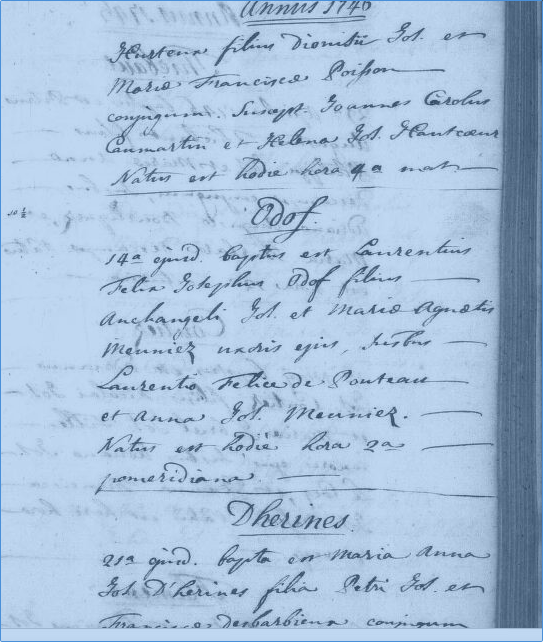 Annus 1746
Hurtena filius Dionitii Jos. et
Mariæ Franciscæ Poisson
conjugum. Suscept. Joannes Carolus
Caumartin et Helena Jos. Hautcœur
Natus est hodie hora 4a mat
Odof
10 ½
14a ejusd. baptus est Laurentius
Felix Josephus Odof filius
Archangeli Jos. et Mariæ Agnetis
Meuniez uxoris ejus,
Laurentio Felice de Ponteau
et Anna Jos. Meuniez.
Natus est hodie hora 2a
pomeridiana
Dherines
21a ejusd. bapta est Maria Anna
Jos. D'herines filia Petri Jos. et
Franciscæ Desbarbieux conjugum